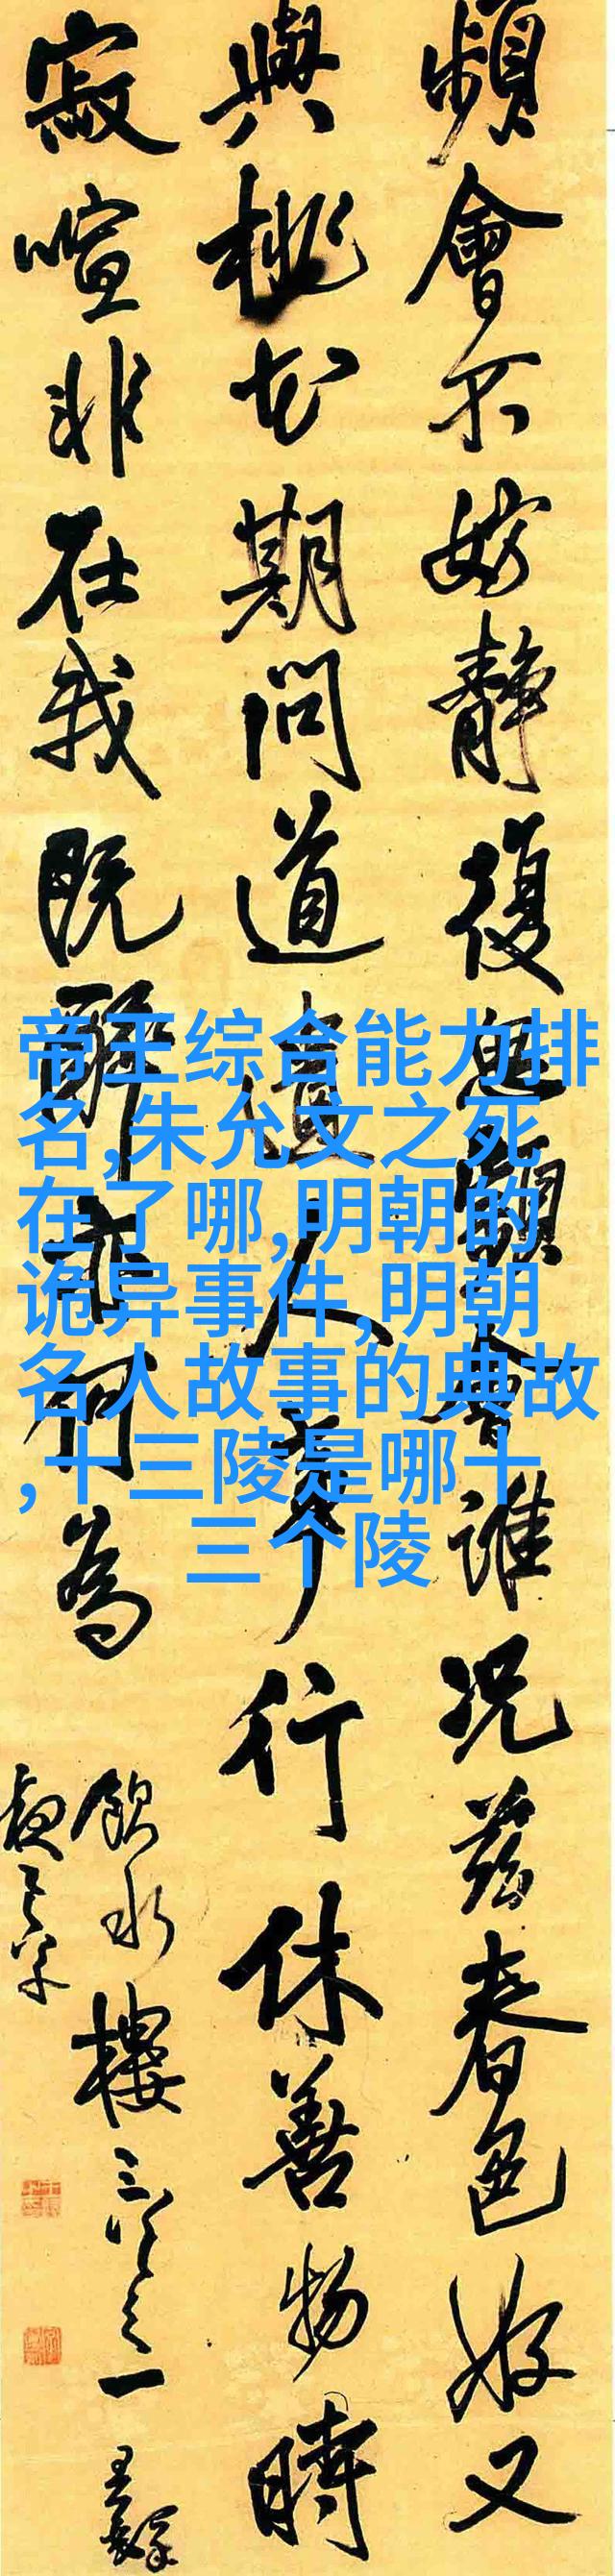 頻會不妨靜復思頻會誰况茲春色好又
與桃花期問道遺人事行休善物時
寂喧非在我既醉亦何為
飲水樓三次之一 王鐸
帝王综合能力排
名,朱允文之死
在了哪,明朝的
诡异事件,明朝
名人故事的典故
,十三陵是哪十
三个陵